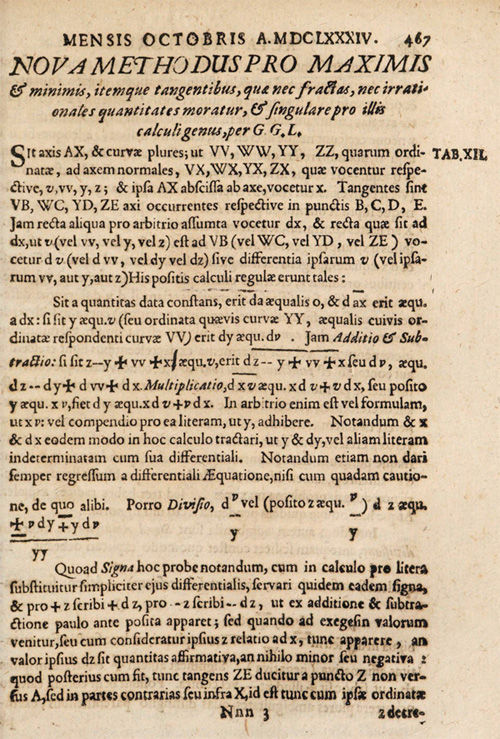 MENSIS OCTOBRIS A. MDCLXXXIV. 467
NOVA METHODUS PRO MAXIMIS
& minimis, itemque tangentibus, quæ nec fractas, nec irrati-
onales quantitates moratur, & ſingulare pro illis
calculi genus, per G. G. L.
Sit axis AX, & curvæ plures; ut VV, WW, YY, ZZ, quarum ordi- TAB. XII.
natæ, ad axem normales, VX, WX, YX, ZX, quæ vocentur reſpe-
ctive, v, vv, y, z; & ipſa AX abſciſſa ab axe, vocetur x. Tangentes ſint
VB, WC, YD, ZE axi occurrentes reſpective in punctis B, C, D, E.
Jam recta aliqua pro arbitrio aſſumta vocetur dx, & recta quæ ſit ad
dx, ut v (vel vv, vel y, vel z) eſt ad VB (vel WC, vel YD, vel ZE) vo-
cetur d v (vel d vv, vel dy vel dz) ſive differentia ipſarum v (vel ipſa-
rum vv, aut y, aut z) His poſitis calculi regulæ erunt tales:
Sit a quantitas data conſtans, erit da æqualis 0, & d ax erit æqu.
a dx: ſi ſit y æqu. v (ſeu ordinata quævis curvæ YY, æqualis cuivis or-
dinatæ reſpondenti curvæ VV) erit dy æqu. dv. Jam Additio & Sub-
tractio: ſi ſit z--y + vv + x æqu. v, erit d z--y + vv + x ſeu dv, æqu.
d z--dy + d vv + d x. Multiplicatio, d x v æqu. x d v + v d x, ſeu poſito
y æqu. x v, fiet d y æqu. x d v + v d x. In arbitrio enim eſt vel formulam,
ut x v: vel compendio pro ea literam, ut y, adhibere. Notandum & x
& d x eodem modo in hoc calculo tractari, ut y & dy, vel aliam literam
indeterminatam cum ſua differentiali. Notandum etiam non dari
ſemper regreſſum a differentiali Æquatione, niſi cum quadam cautio-
ne, de quo alibi. Porro Diviſio, d v vel (poſito z æqu. v) d z æqu.
+ v dy + y d v y y
yy
Quoad Signa hoc probe notandum, cum in calculo pro litera
ſubſtituitur ſimpliciter ejus differentialis, ſervari quidem eadem ſigna,
& pro + z ſcribi + d z, pro -- z ſcribi -- d z, ut ex additione & ſubtra-
ctione paulo ante poſita apparet; ſed quando ad exegeſin valorum
venitur, ſeu cum conſideratur ipſius z relatio ad x, tunc apparere, an
valor ipſius dz ſit quantitas affirmativa, an nihilo minor ſeu negativa:
quod poſterius cum fit, tunc tangens ZE ducitur a puncto Z non ver-
ſus A, ſed in partes contrarias ſeu infra X, id eſt tunc cum ipſæ ordinatæ
Nnn 3 z decre-